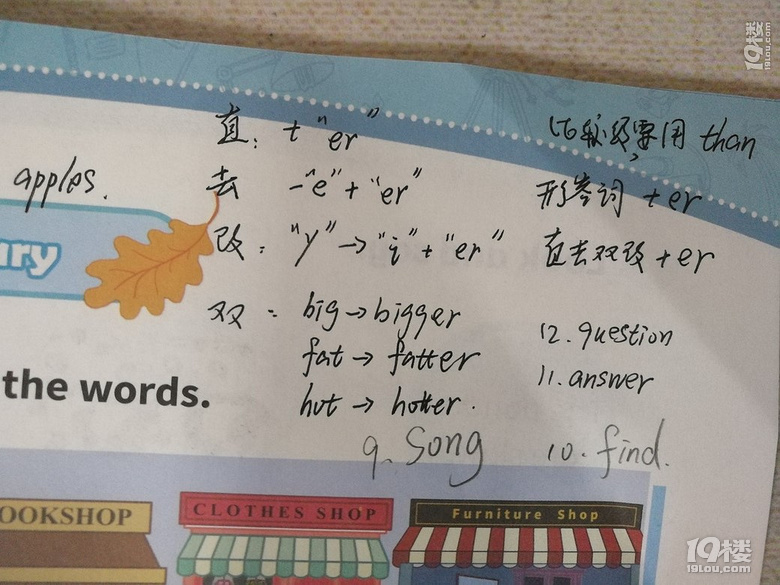 19楼
19lou.com
直: + "er"
比较级要用 than
apples.
去 -"e" + "er"
形容词 + er
ary
改: "y" → "i" + "er"
直去双改 + er
双: big → bigger
fat → fatter
hot → hotter.
12. question
11. answer
the words.
9. Song
10. find.
OOKSHOP
CLOTHES SHOP
Furniture Shop
19楼
19lou.com